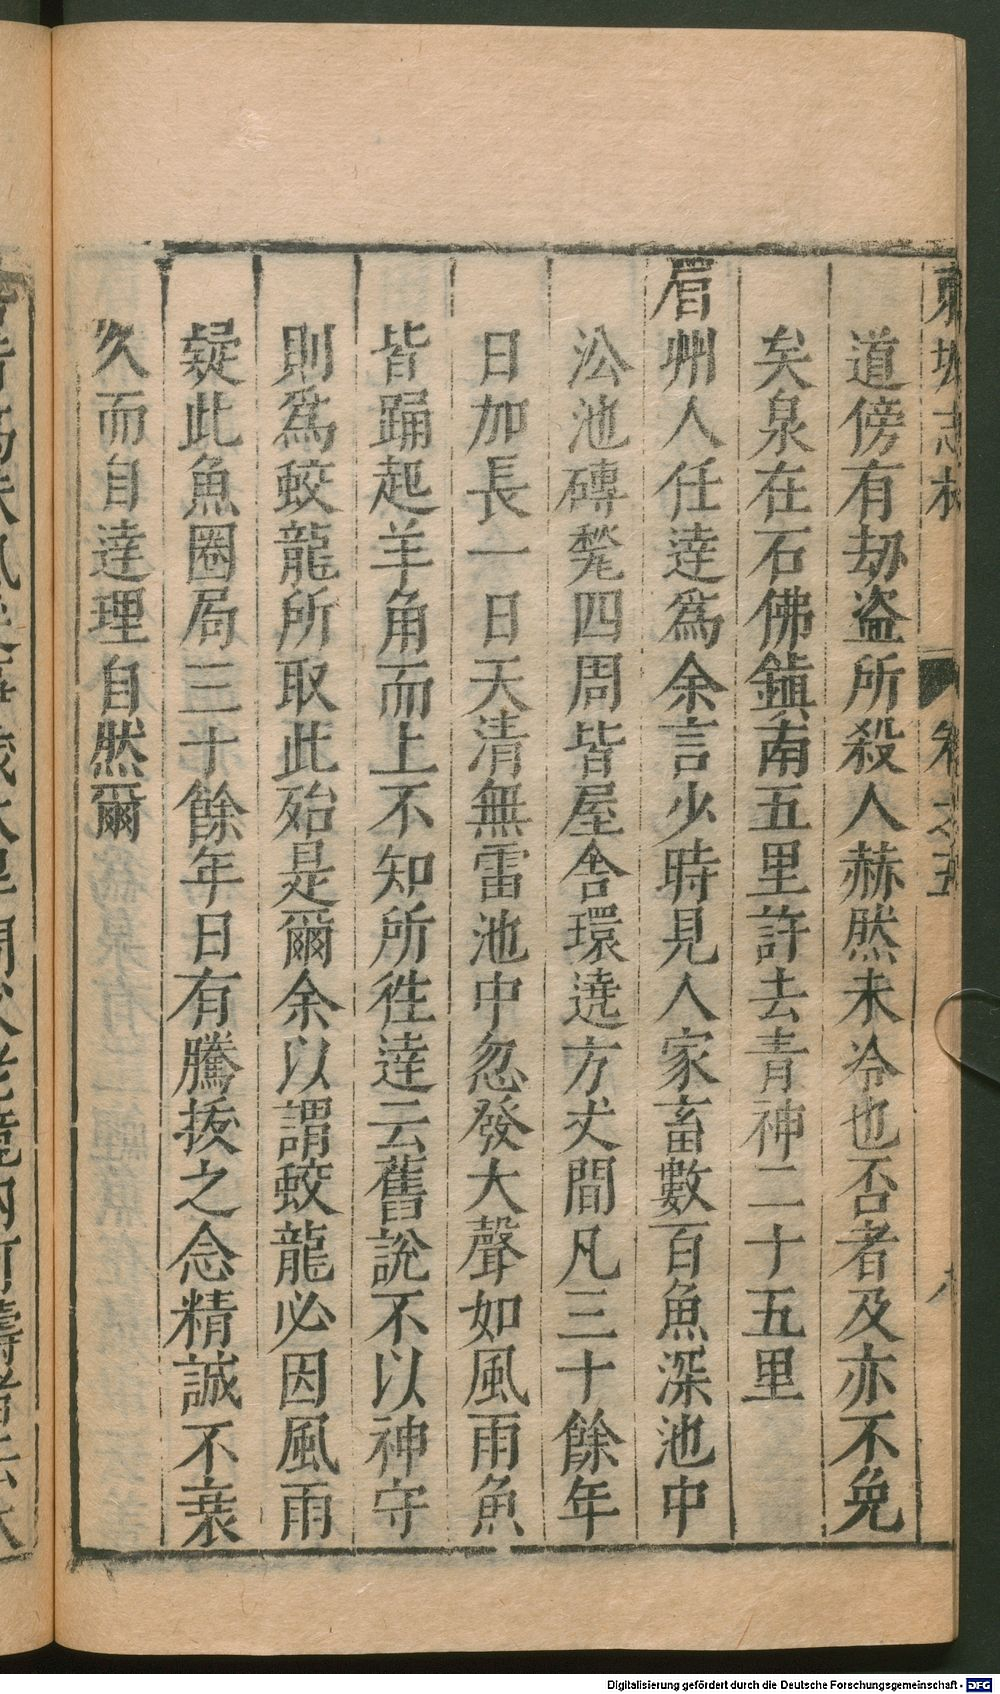 道傍有劫盗所殺人赫然未冷也否者及亦不免
矣泉在石佛鎮南五里許去青神二十五里
眉州人任達爲余言少時見人家畜數百魚深池中
㳂池磚甃四周皆屋舍環遶方丈間凡三十餘年
日加長一日天清無雷池中忽發大聲如風雨魚
皆踊起羊角而上不知所徃達云舊說不以神守
則爲蛟龍所取此殆是爾余以謂蛟龍必因風雨
疑此魚圈局三十餘年日有騰拔之念精誠不衰
久而自達理自然爾
東坡志林 卷之五
Digitalisierung gefördert durch die Deutsche Forschungsgemeinschaft - DFG